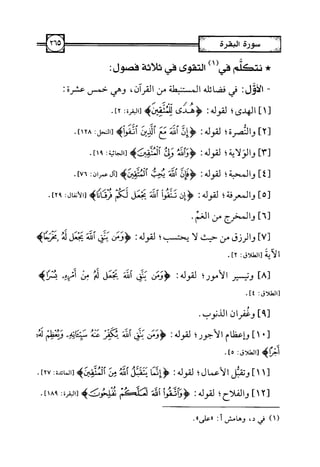 سورة البقرة
٢٦٥
* نتكلَّم في(١) التقوى في ثلاثة فصول:
- الأوَّل: في فضائله المستنبطة من القرآن، وهي خمس عشرة:
[١] الهدى؛ لقوله: ﴿هُدًى لِلْمُتَّقِينَ﴾ [البقرة: ٢].
[٢] والنُّصرة؛ لقوله: ﴿إِنَّ اللَّهَ مَعَ الَّذِينَ اتَّقَوا﴾ [النحل: ١٢٨].
[٣] والوِلاية؛ لقوله: ﴿وَاللَّهُ وَلِيُّ الْمُتَّقِينَ﴾ [الجاثية: ١٩].
[٤] والمحبة؛ لقوله: ﴿فَإِنَّ اللَّهَ يُحِبُّ الْمُتَّقِينَ﴾ [آل عمران: ٧٦].
[٥] والمعرفة؛ لقوله: ﴿إِن تَتَّقُوا اللَّهَ يَجْعَل لَّكُمْ فُرْقَانًا﴾ [الأنفال: ٢٩].
[٦] والمخرج من الغمِّ.
[٧] والرزق من حيث لا يحتسب؛ لقوله: ﴿وَمَن يَتَّقِ اللَّهَ يَجْعَل لَّهُ مَخْرَجًا﴾
الآيةَ [الطلاق: ٢].
[٨] وتيسير الأمور؛ لقوله: ﴿وَمَن يَتَّقِ اللَّهَ يَجْعَل لَّهُ مِنْ أَمْرِهِ يُسْرًا﴾
[الطلاق: ٤].
[٩] وغُفران الذنوب.
[١٠] وإعظام الأجور؛ لقوله: ﴿وَمَن يَتَّقِ اللَّهَ يُكَفِّرْ عَنْهُ سَيِّئَاتِهِ وَيُعْظِمْ لَهُ
أَجْرًا﴾ [الطلاق: ٥].
[١١] وتقبُّل الأعمال؛ لقوله: ﴿إِنَّمَا يَتَقَبَّلُ اللَّهُ مِنَ الْمُتَّقِينَ﴾ [المائدة: ٢٧].
[١٢] والفلاح؛ لقوله: ﴿وَاتَّقُوا اللَّهَ لَعَلَّكُمْ تُفْلِحُونَ﴾ [البقرة: ١٨٩].
(١) في د، وهامش أ: «على».